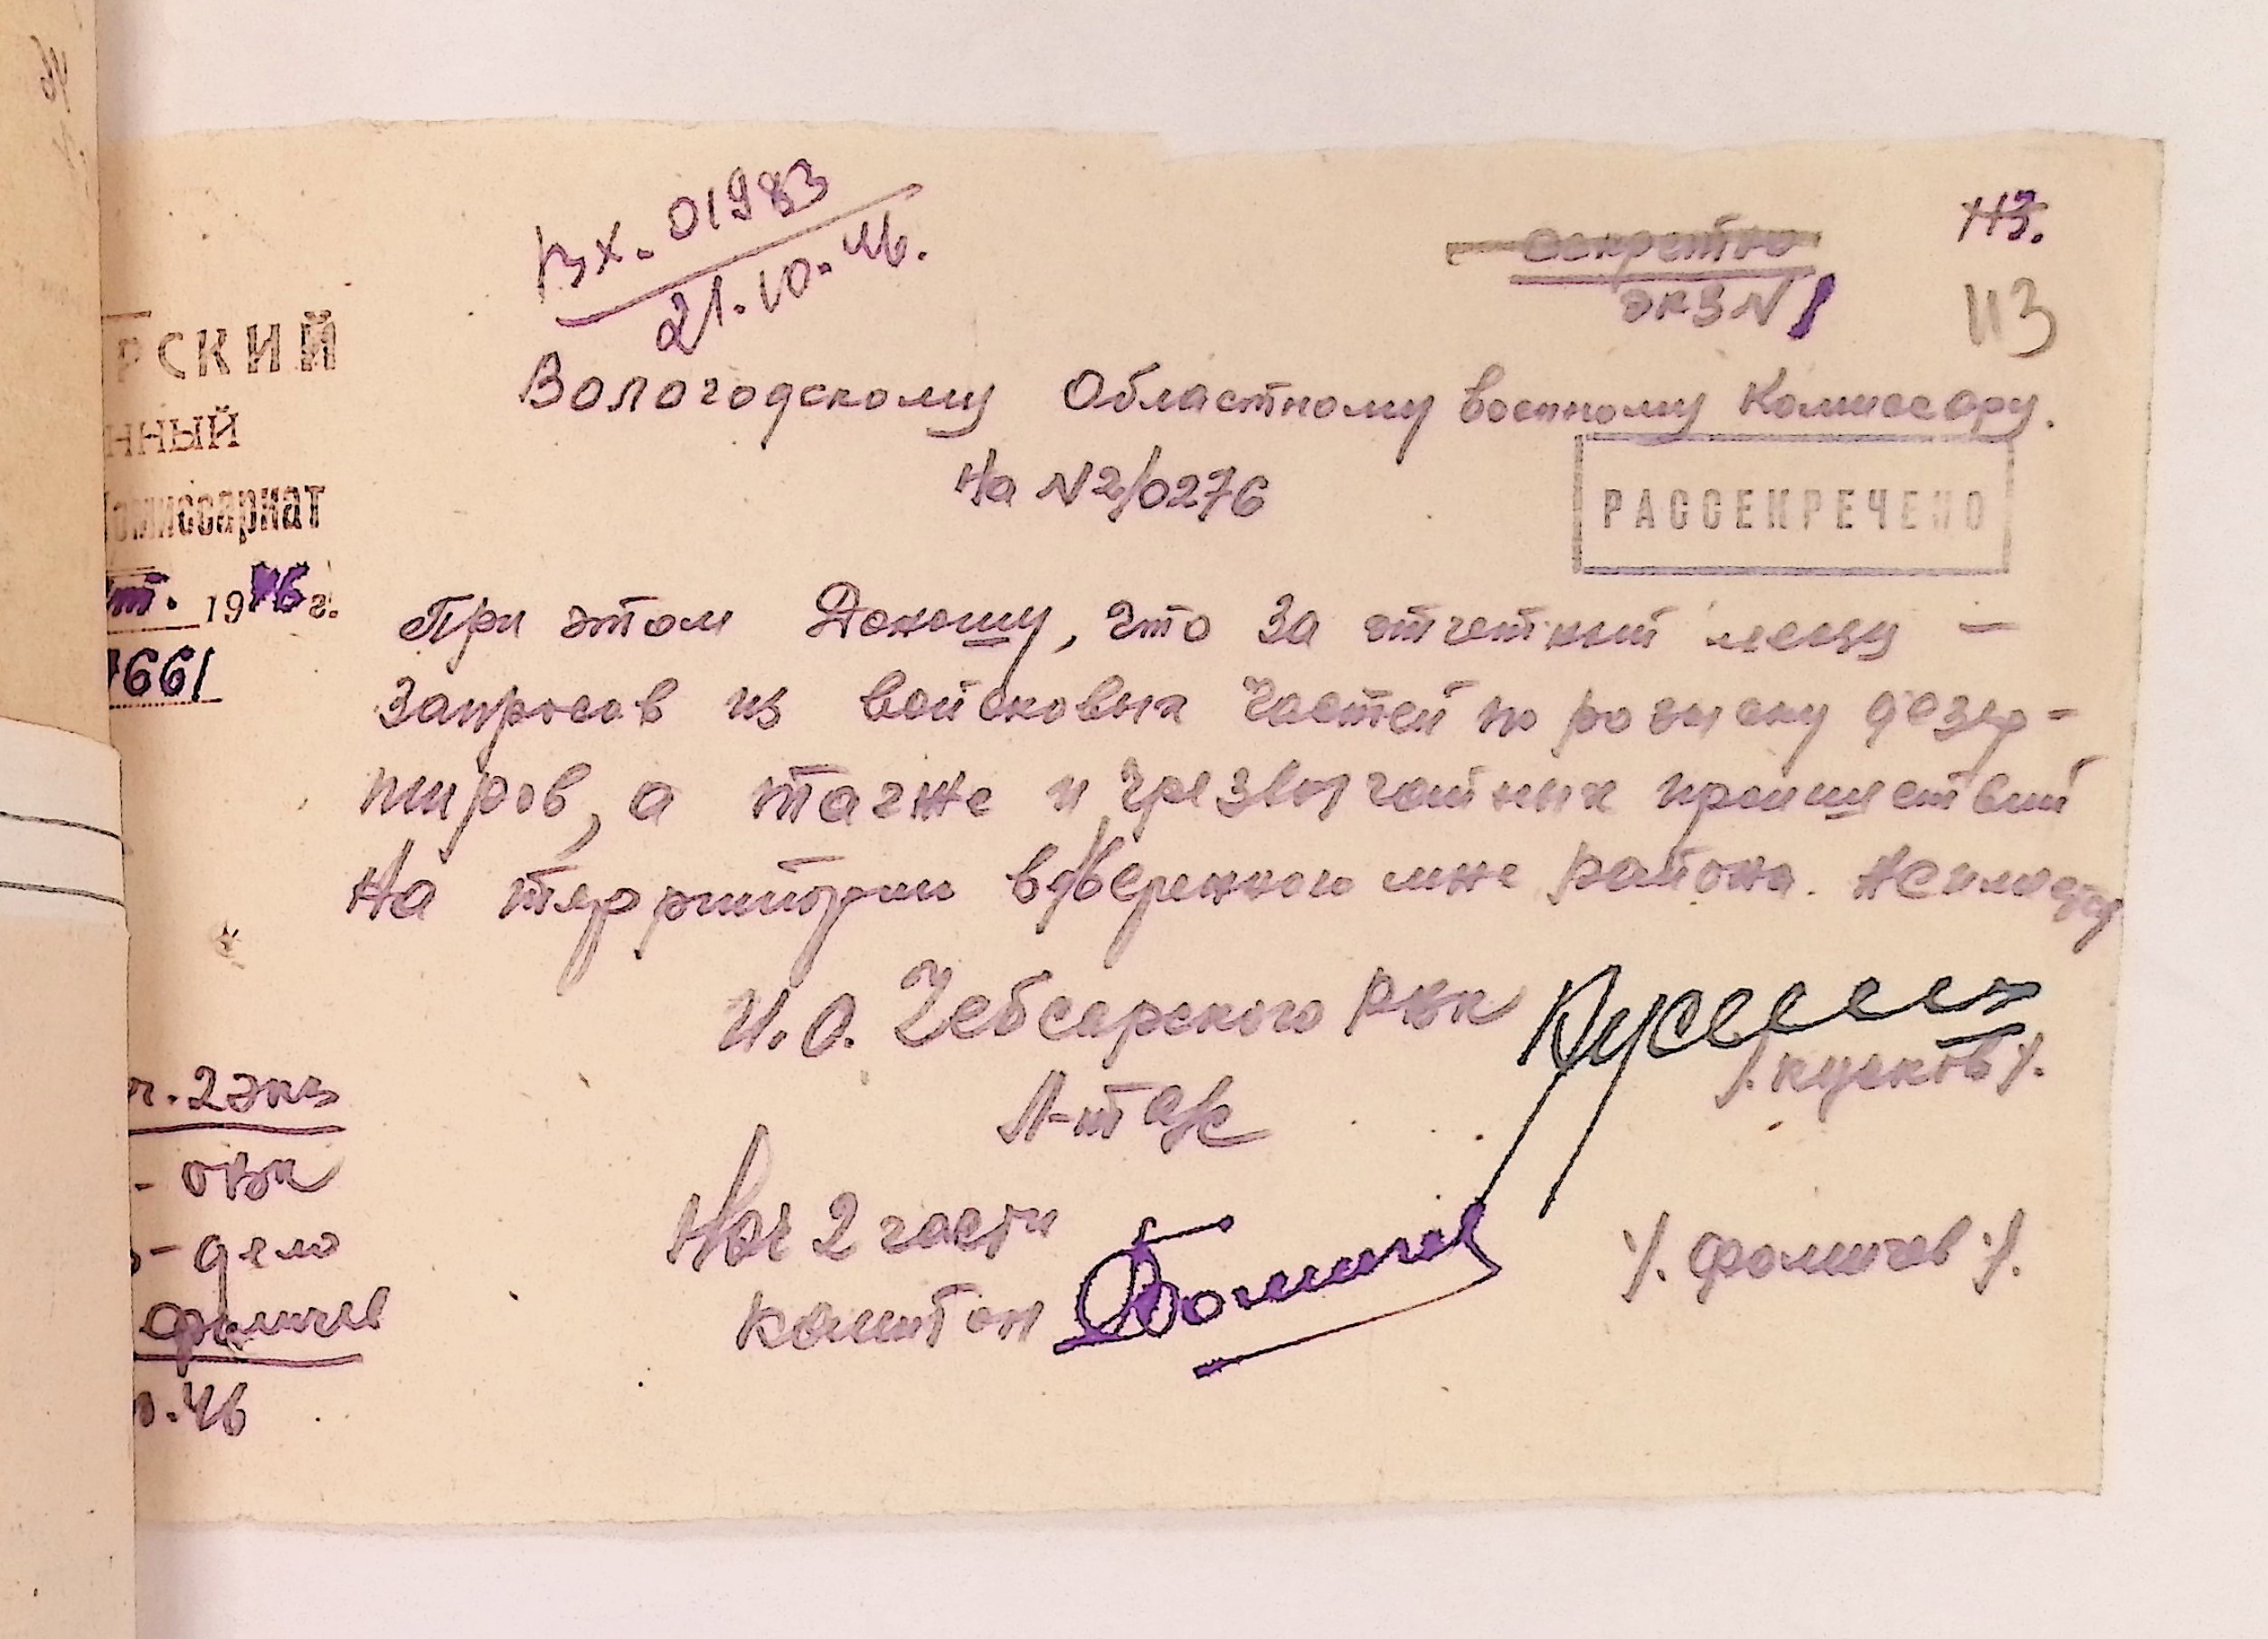 Вх. 01983
21.10.46.
секретно
экз N 1
113.
113
РСКИЙ
ННЫЙ
омиссариат
т. 1946 г.
1661
Вологодскому Областному военному Комиссару.
На N 2/0276
РАССЕКРЕЧЕНО
При этом Доношу, что за отчетный месяц –
запросов из войсковых частей по розыску дезер-
тиров, а также и чрезвычайных происшествий
на территории вверенного мне района. не
И.О. Чебсарского РВК
/. кусков /.
Л-т а/с
Нач 2 части
капитан Фомичев
/. фомичев /.
2 экз
- ОВК
- дело
фомичев
.46